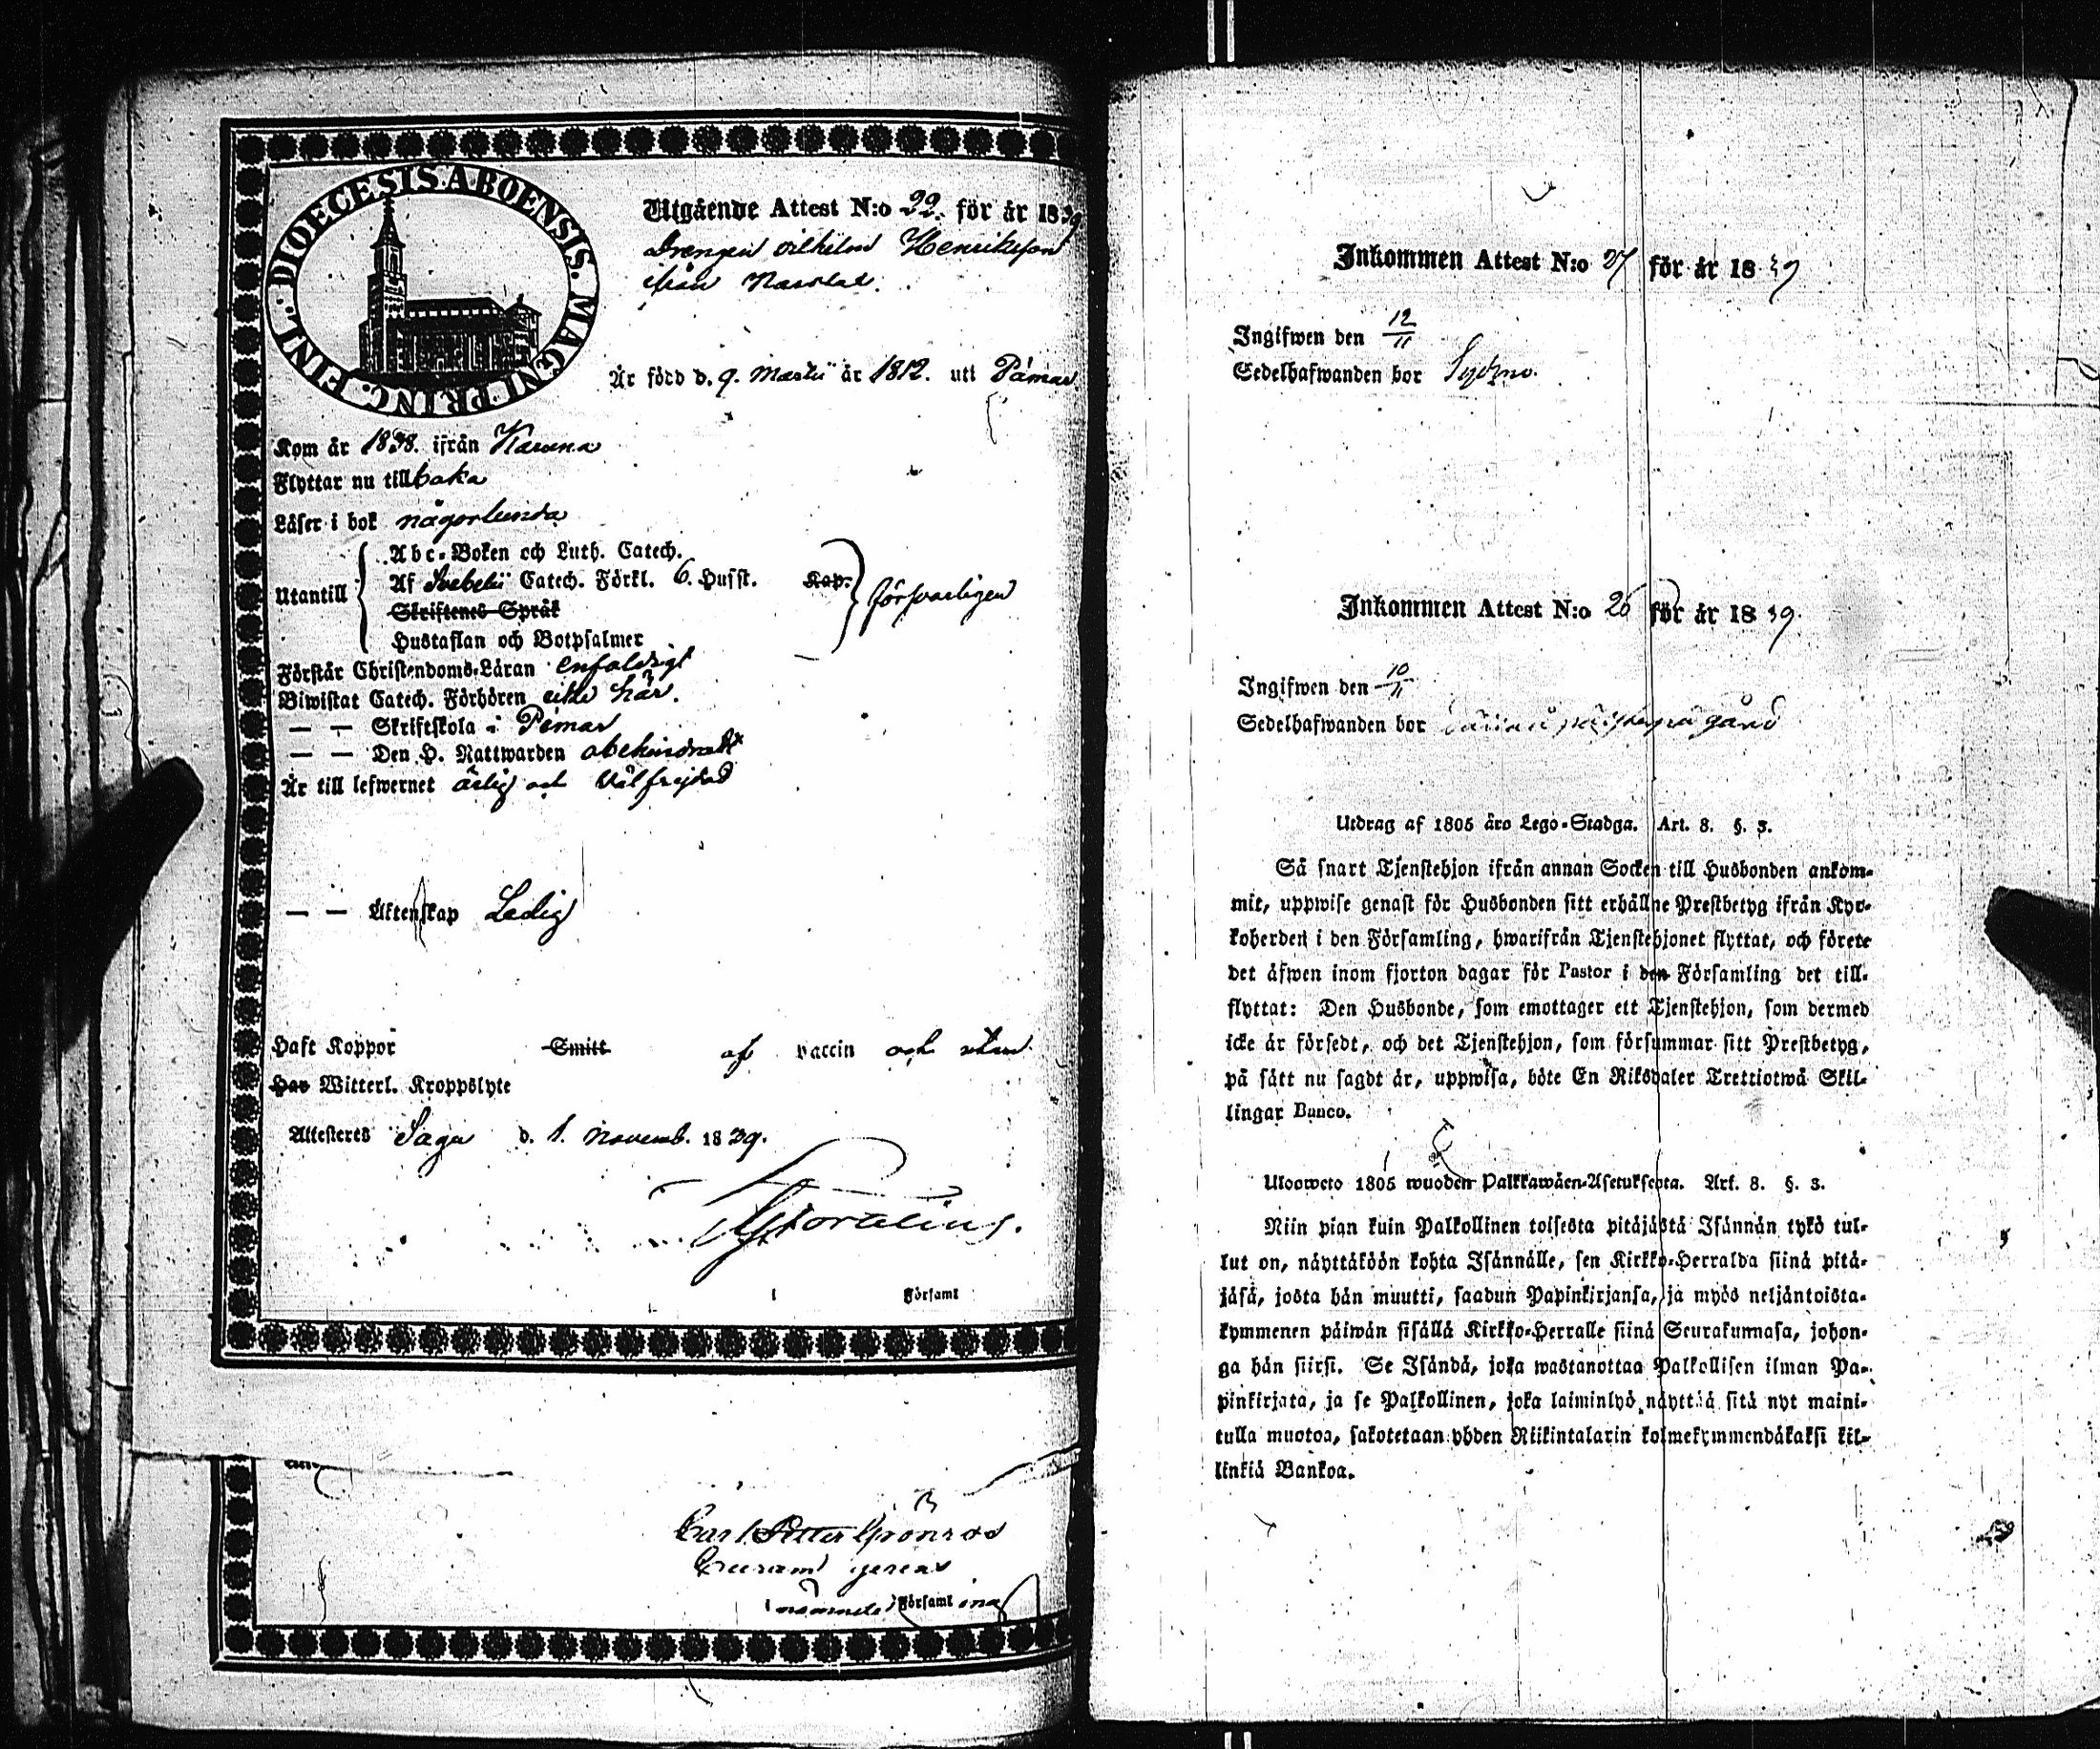 DIOECESIS. ABOENSIS. MAGNI PRINC. FINL.
Utgående Attest N:o 22. för år 1839
Drengen Vilhelm Henriksson
ifrån
Är född d. 9. Martii år 1812. uti Pemar
Kom år 1838. ifrån Karuna
Flyttar nu tillbaka
Läser i bok någorlunda
Utantill
Abc-Boken och Luth. Catech.
Af Svebelii Catech. Förkl. 6. Husst. Kap.
försvarligen
Skriftenes Språk
Hustaflan och Botpsalmer
Förstår Christendoms-Läran enfaldigt
Biwistat Catech. Förhören icke här.
— — Skriftskola i Pemar
— — Den H. Nattwarden obehindradt
Är till lefwernet ärlig och Välfrejdad
— — Äktenskap Ledig
Haft Koppor Smitt af vaccin och utan
Har Witterl. Kroppslyte
Attesteras Sagu d. 1. Novemb. 1839.
i Församl
Carl Petter Grönroos
Församl ing
Inkommen Attest N:o 27 för år 1839
Ingifwen den 12/11
Sedelhafwanden bor
Inkommen Attest N:o 26 för år 1839.
Ingifwen den 10/11
Sedelhafwanden bor gård
Utdrag af 1805 års Lego-Stadga. Art. 8. §. 3.
Så snart Tjenstehjon ifrån annan Socken till Husbonden ankom-
mit, uppwise genast för Husbonden sitt erhållne Prestbetyg ifrån Kyr-
koherden i den Församling, hwarifrån Tjenstehjonet flyttat, och förete
det äfwen inom fjorton dagar för Pastor i den Församling det till-
flyttat: Den Husbonde, som emottager ett Tjenstehjon, som dermed
icke är försedt, och det Tjenstehjon, som försummar sitt Prestbetyg,
på sätt nu sagdt är, uppwisa, böte En Riksdaler Trettiotwå Skil-
lingar Banco.
Ulosweto 1805 wuoden Palkkawäen-Asetuksesta. Art. 8. §. 3.
Niin pian kuin Palkollinen toisesta pitäjästä Isännän tykö tul-
lut on, näyttäköön kohta Isännälle, sen Kirkko-Herralda siinä pitä-
jäsä, josta hän muutti, saadun Papinkirjansa, ja myös neljäntoista-
kymmenen päiwän sisällä Kirkko-Herralle siinä Seurakunnasa, johon-
ga hän siirsi. Se Isändä, joka wastanottaa Palkollisen ilman Pa-
pinkirjata, ja se Palkollinen, joka laiminlyö näyttää sitä nyt maini-
tulla muotoa, sakotetaan yhden Riikintalarin kolmekymmendäkaksi kil-
linkiä Bankoa.